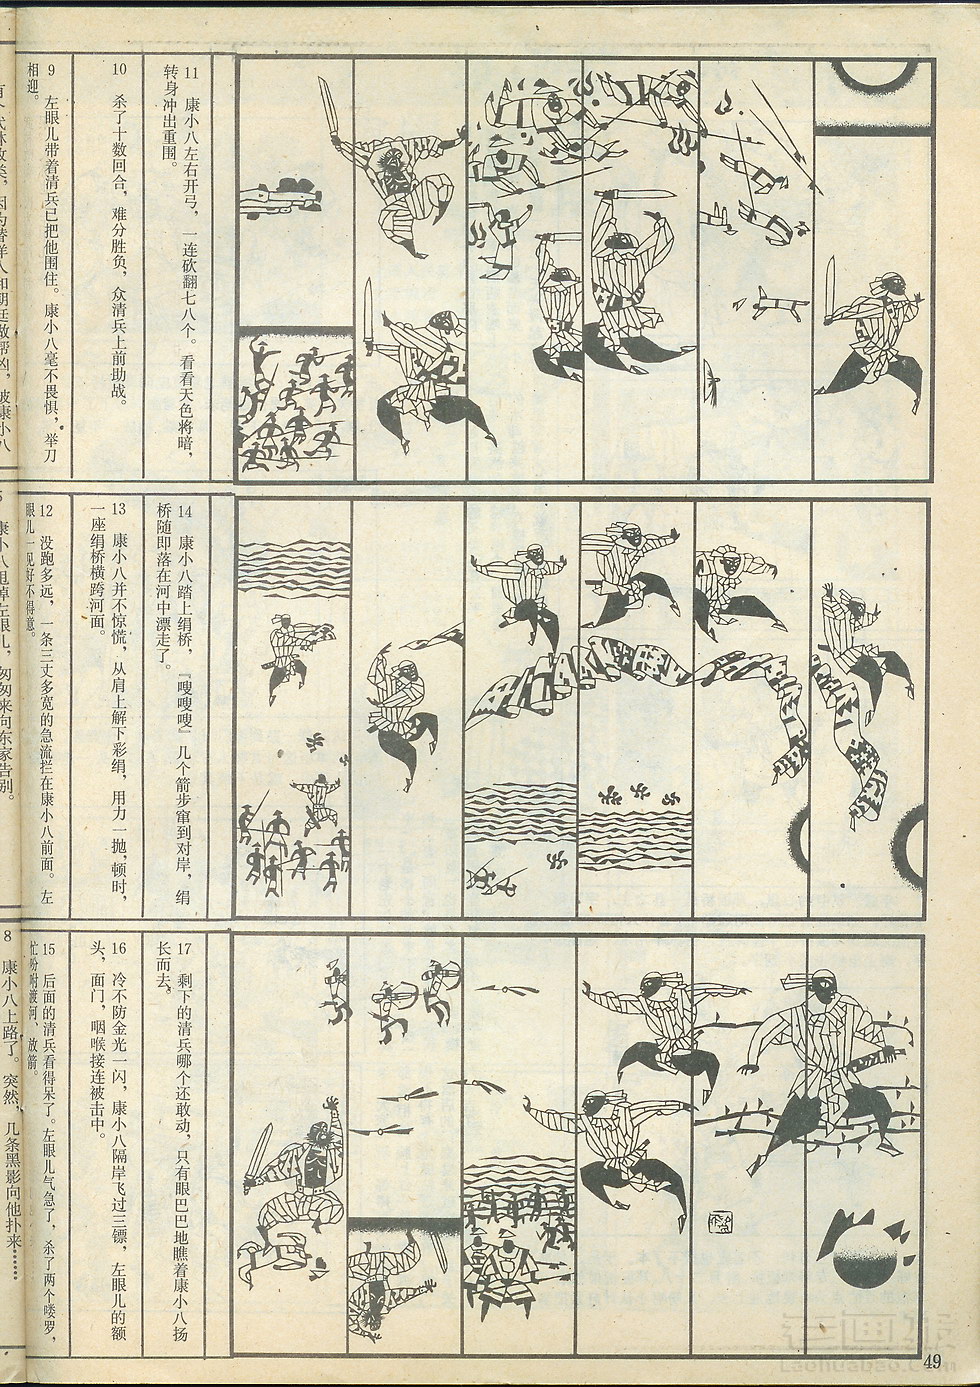 9 左眼儿带着清兵已把他围住。康小八毫不畏惧，举刀
相迎。
10 杀了十数回合，难分胜负，众清兵上前助战。
11 康小八左右开弓，一连砍翻七八个。看看天色将暗，
转身冲出重围。
康小八甩掉左眼儿，匆匆来向东家告别。
12 没跑多远，一条三丈多宽的急流拦在康小八前面。左
眼儿一见好不得意。
13 康小八并不惊慌，从肩上解下彩绢，用力一抛，顿时，
一座绢桥横跨河面。
14 康小八踏上绢桥，『嗖嗖嗖』几个箭步窜到对岸，绢
桥随即落在河中漂走了。
8 康小八上路了。突然，几条黑影向他扑来……
15 后面的清兵看得呆了。左眼儿气急了，杀了两个喽罗，
忙吩咐渡河、放箭。
16 冷不防金光一闪，康小八隔岸飞过三镖，左眼儿的额
头，面门，咽喉接连被击中。
17 剩下的清兵哪个还敢动，只有眼巴巴地瞧着康小八扬
长而去。
49
老画报
Laohuabao.Com